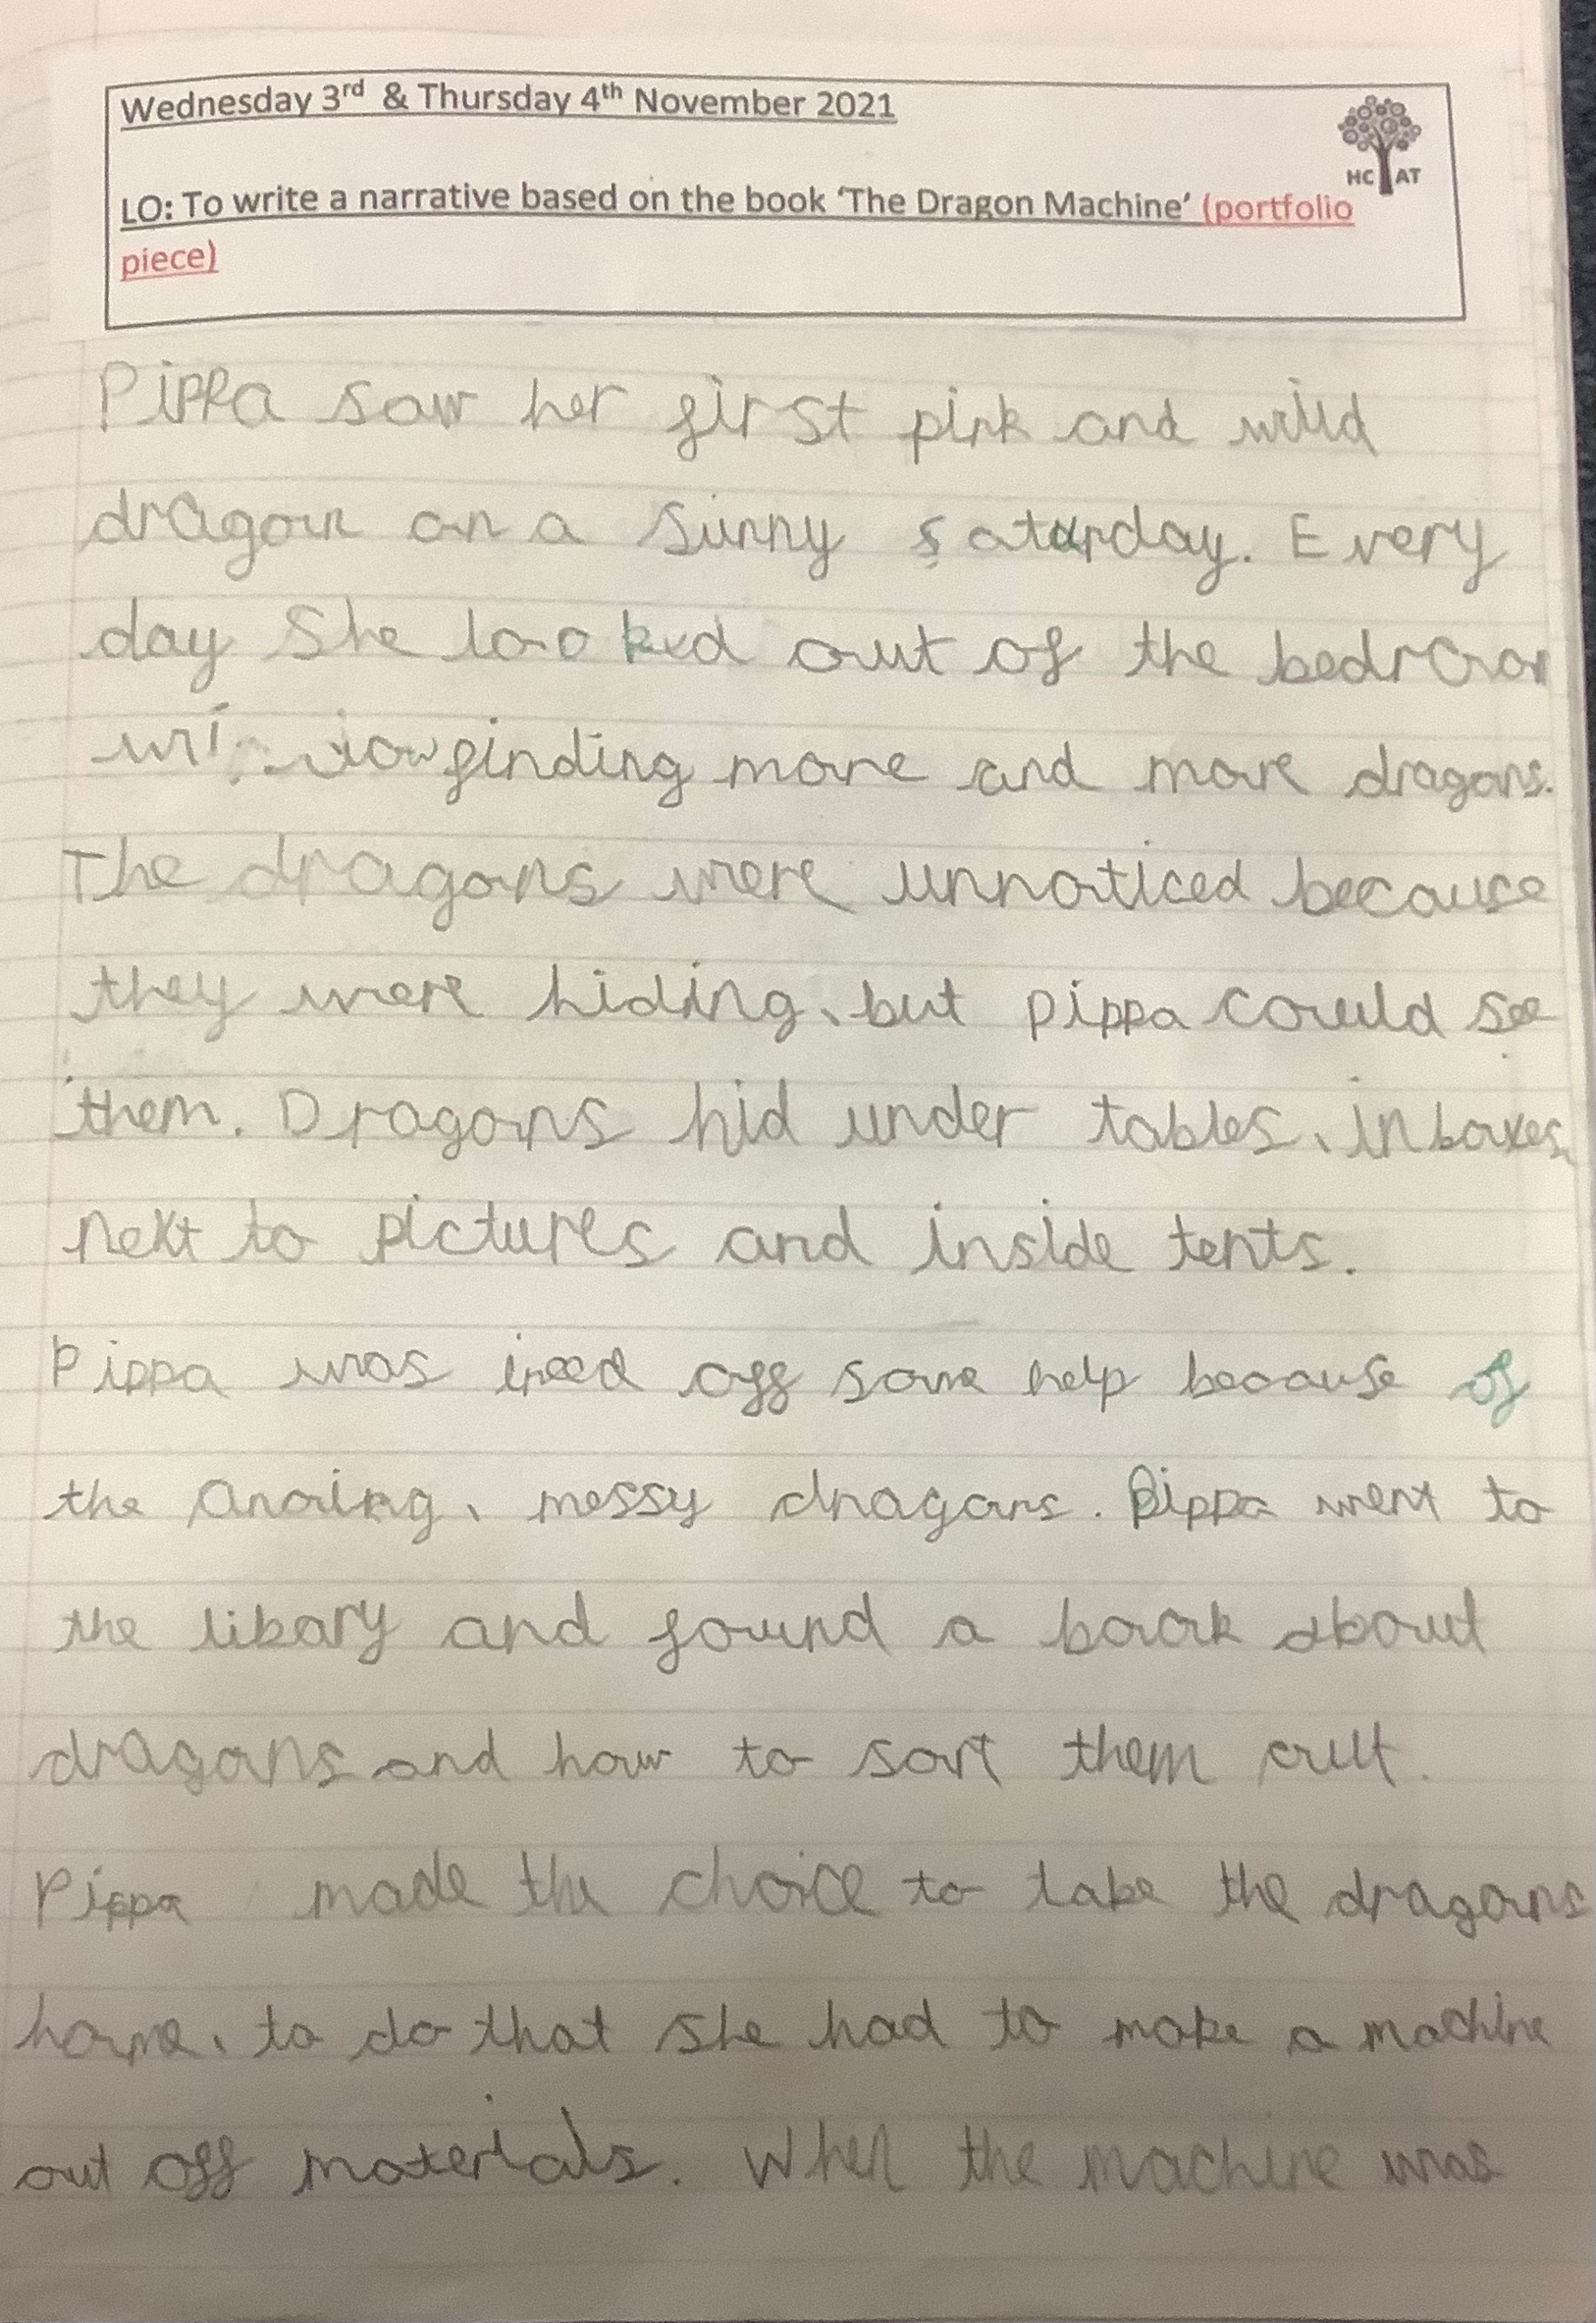 Wednesday 3rd & Thursday 4th November 2021
HC AT
LO: To write a narrative based on the book ‘The Dragon Machine’ (portfolio
piece)
Pippa saw her first pink and wild
dragon on a sunny saturday. Every
day She looked out of the bedroom
window finding more and more dragons.
The dragons were unnoticed because
they were hiding, but pippa could see
them. Dragons hid under tables, in boxes,
next to pictures and inside tents.
Pippa was ineed off some help because of
the anoiing, messy dragons. Pippa went to
the libary and found a book about
dragons and how to sort them out.
Pippa made the choice to take the dragons
home, to do that she had to make a machine
out off materials. When the machine was